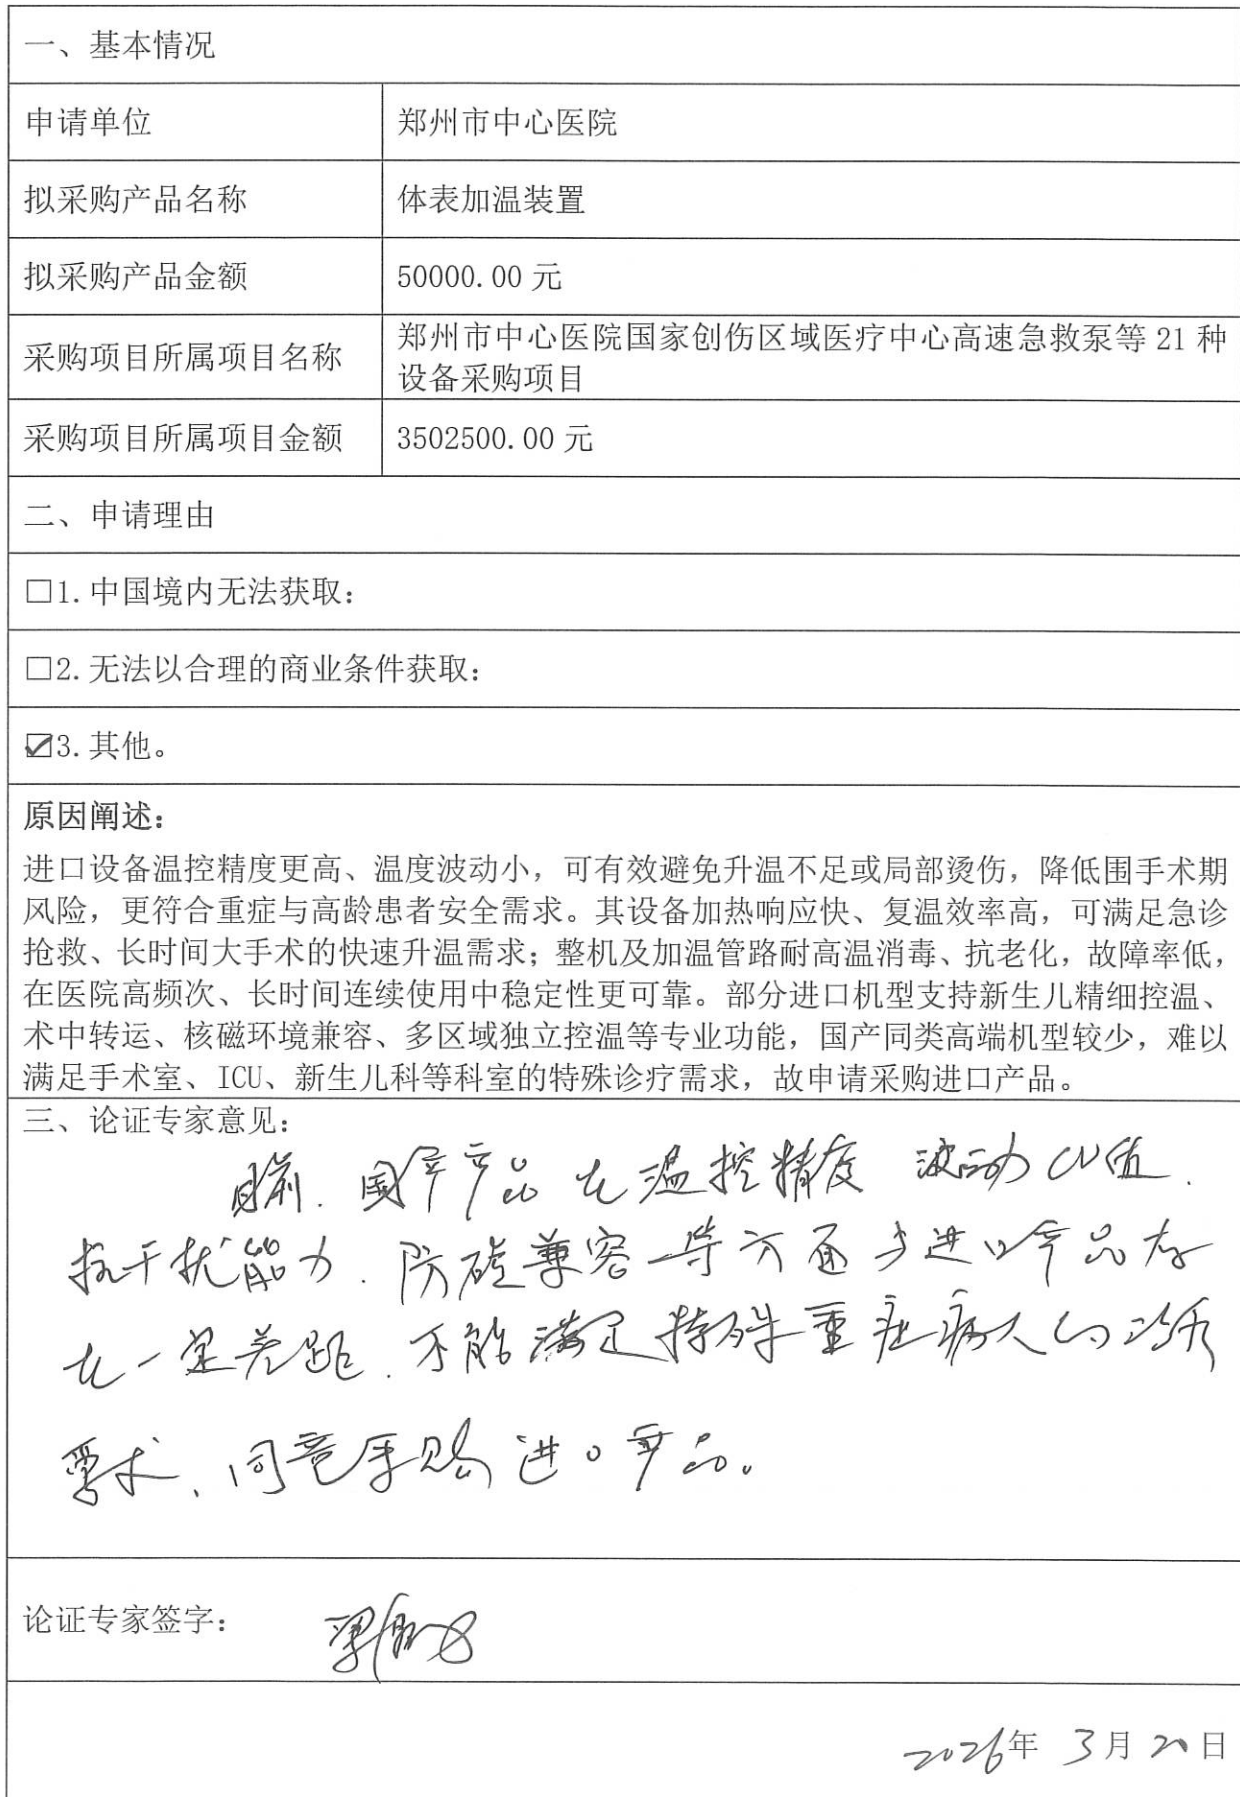 一、基本情况
申请单位 郑州市中心医院
拟采购产品名称 体表加温装置
拟采购产品金额 50000.00 元
采购项目所属项目名称 郑州市中心医院国家创伤区域医疗中心高速急救泵等 21 种
设备采购项目
采购项目所属项目金额 3502500.00 元
二、申请理由
□1.中国境内无法获取：
□2.无法以合理的商业条件获取：
☑3.其他。
原因阐述：
进口设备温控精度更高、温度波动小，可有效避免升温不足或局部烫伤，降低围手术期
风险，更符合重症与高龄患者安全需求。其设备加热响应快、复温效率高，可满足急诊
抢救、长时间大手术的快速升温需求；整机及加温管路耐高温消毒、抗老化，故障率低，
在医院高频次、长时间连续使用中稳定性更可靠。部分进口机型支持新生儿精细控温、
术中转运、核磁环境兼容、多区域独立控温等专业功能，国产同类高端机型较少，难以
满足手术室、ICU、新生儿科等科室的特殊诊疗需求，故申请采购进口产品。
三、论证专家意见：
目前.国产产品在温控精度 波动CV值.
抗干扰能力.防磁兼容等方面与进口产品存
在一定差距.不能满足特殊重症病人的治疗
要求、同意采购进口产品。
论证专家签字：
2026年 3月 20日